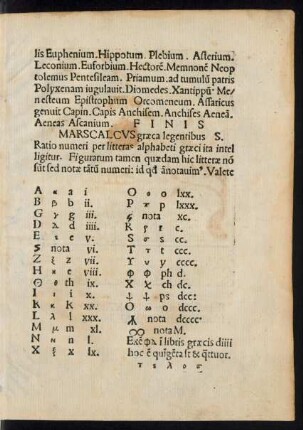 lis Euphenium. Hippotum. Plebium. Asterium.
Leconium. Euforbium. Hectorē. Memnonē Neop
tolemus Pentesileam. Priamum. ad tumulū patris
Polyxenam iugulauit. Diomedes. Xantippū. Me⸗
nesteum Epistrophum Orcomeneum. Assaricus
genuit Capin. Capis Anchisem. Anchises Aeneā.
Aeneas Ascanium. F I N I S
MARSCALCVS græca legentibus S.
Ratio numeri per litteras alphabeti græci ita intel
ligitur. Figurarum tamen quædam hic litteræ nō
sūt sed notæ tātū numeri: id qd̄ ānotauimꝰ. Valete
A α a i
B β g ii.
Γ g γ iii.
Δ λ d iiii.
E ε e v.
ς nota vi.
Z ζ z vii.
H η e viii
Θ θ th ix.
I ι i x.
K κ K xx.
L λ l xxx.
M μ m xl.
N n l.
X ξ x lx.
O o o lxx.
P π p lxxx.
nota xc.
R ρ r c.
S σ s cc.
T τ t cc.
Y υ y cccc.
Φ φ ph d.
X χ ch dc.
ps dcc:
O ω o dccc.
nota dcccc.
nota M.
i libris græcis diiii
hoc ē quīgēta &
τελος